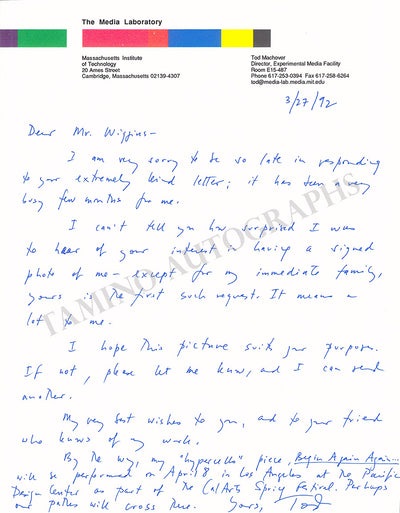 The Media Laboratory
Massachusetts Institute
of Technology
20 Ames Street
Cambridge, Massachusetts 02139-4307
Tod Machover
Director, Experimental Media Facility
Room E15-487
Phone 617-253-0394 Fax 617-258-6264
tod@media-lab.media.mit.edu
3/27/92
Dear Mr. Wiggins-
I am very sorry to be so late in responding
to your extremely kind letter; it has been a very
busy few months for me.
I can't tell you how surprised I was
to hear of your interest in having a signed
photo of me - except for my immediate family,
yours is the first such request. It means a
lot to me.
I hope this picture suits your purpose.
If not, please let me know, and I can send
another.
My very best wishes to you, and to your friend
who knows of my work.
By the way, my "hypercello" piece, Begin Again Again...
will be performed on April 8 in Los Angeles at the Pacific
Design Center as part of the CalArts Spring Festival. Perhaps
our paths will cross there. Yours, Tod
TAMINO AUTOGRAPHS